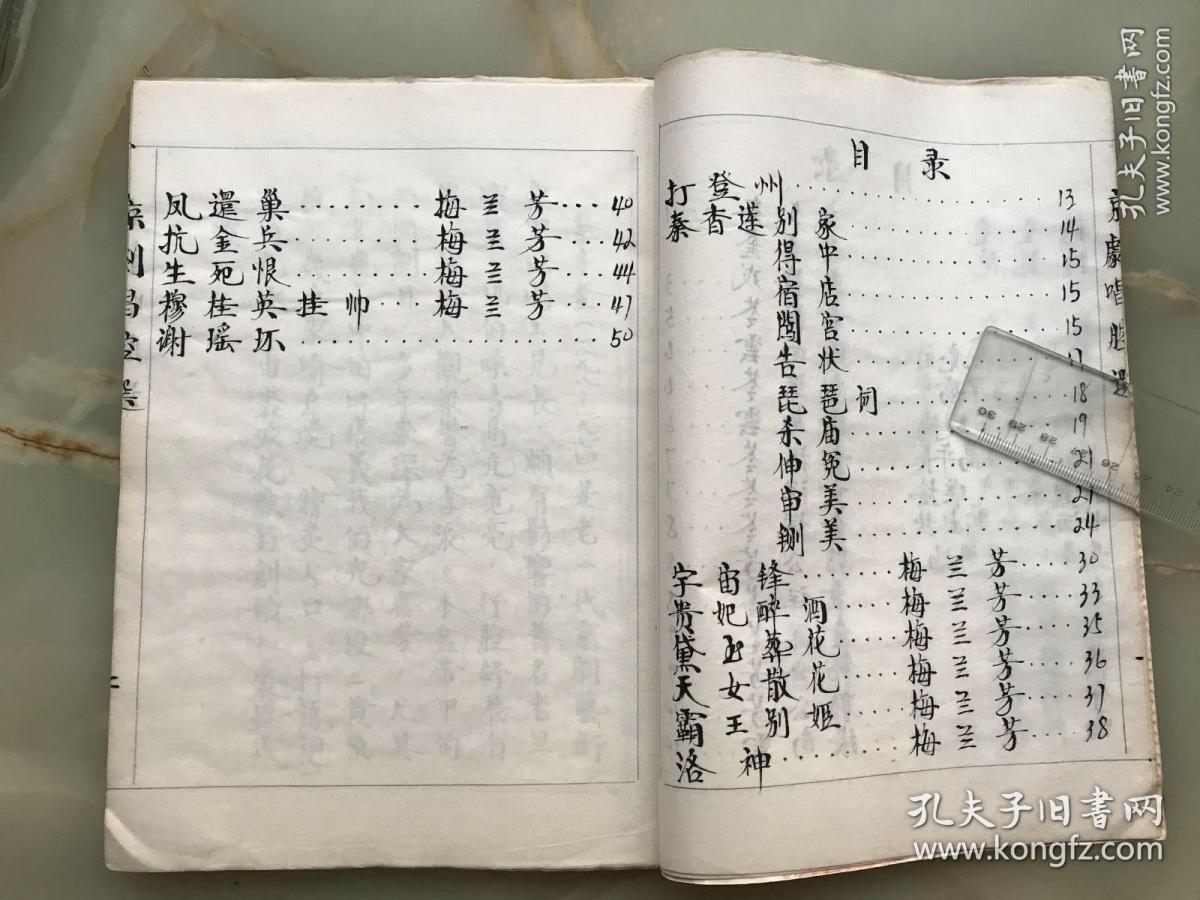 目录
打登州……13
秦香莲 别家……14
得中……15
宿店……15
闯宫……15
告状……17
琵琶词……18
杀庙……19
伸冤……21
审美……21
铡美……24
宇宙锋……梅兰芳……30
贵妃醉酒……梅兰芳……33
黛玉葬花……梅兰芳……35
天女散花……梅兰芳……36
霸王别姬……梅兰芳……37
洛神……梅兰芳……38
京劇唱腔選
凤還巢……梅兰芳……40
抗金兵……梅兰芳……42
生死恨……梅兰芳……44
穆桂英挂帅……梅兰芳……47
谢瑶环……50
京剧唱腔選
二
孔夫子旧书网
www.kongfz.com
孔夫子旧书网
www.kongfz.com